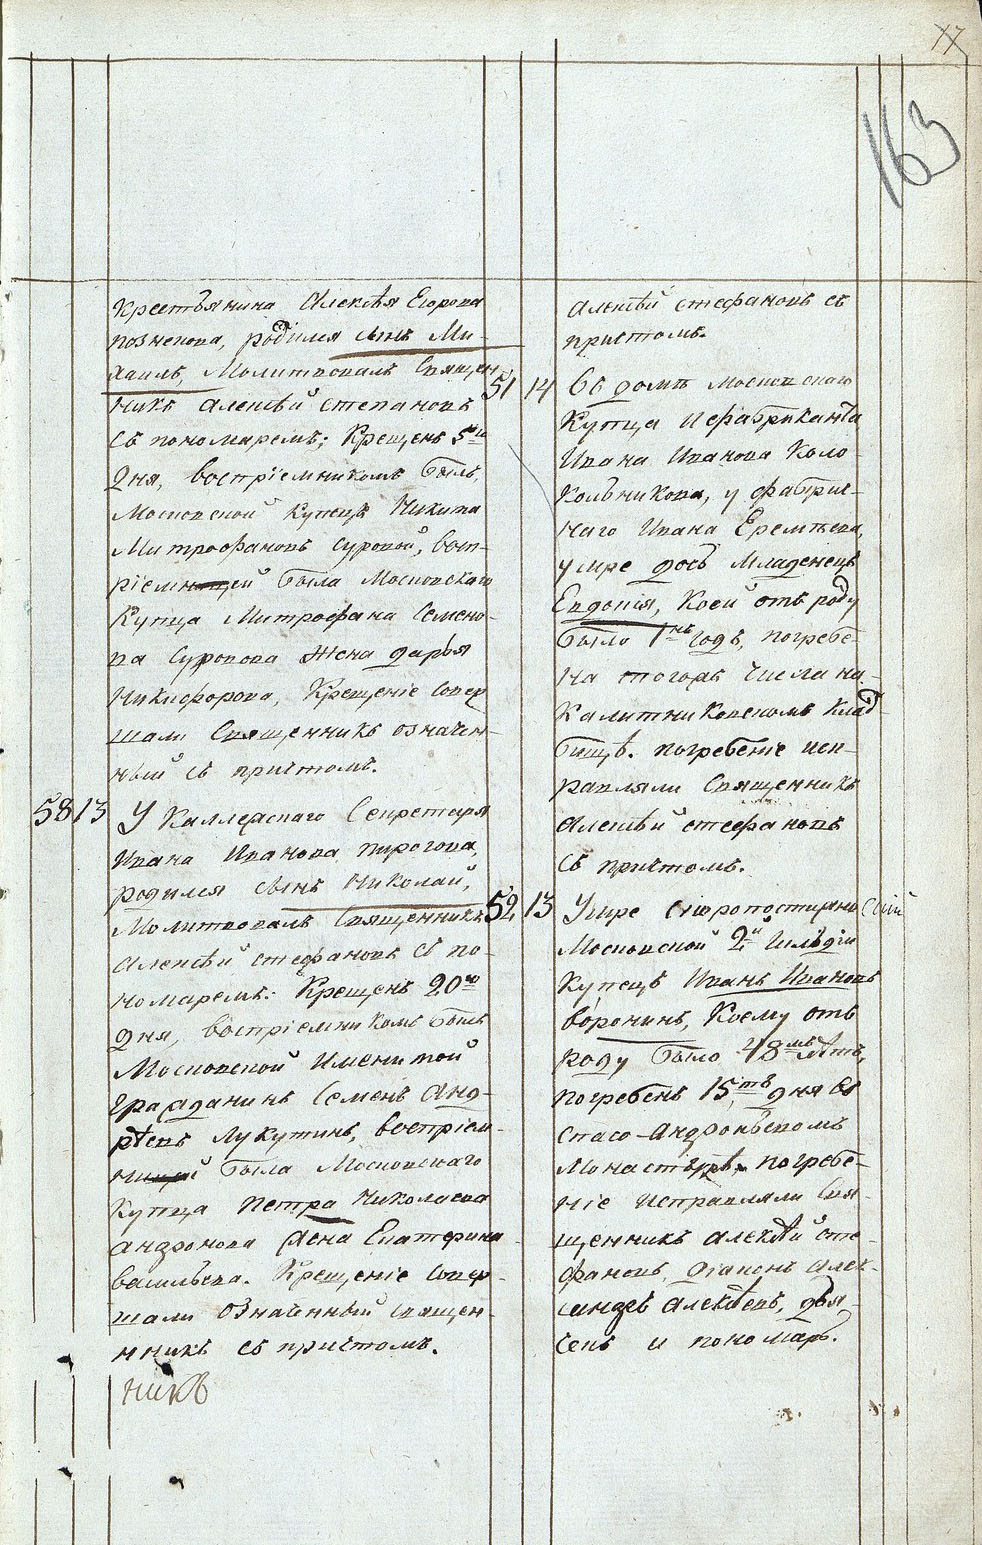 17
163
Крестьянина Алексѣя Егорова
познекова, родился сынъ Ми-
хаилъ, Молитвовалъ Священ
никъ алексѣй степановъ
съ пономаремъ; Крещенъ 5го
дня, воспріемникомъ былъ,
Московской купецъ Никита
Митрофановъ суровой, восп-
ріемницей была Московскаго
Купца Митрофана Семено-
ва суровова жена дарья
Никифорова, Крещеніе совер
шали Священникъ означен-
ный съ причтомъ.
58 13 У Каллежскаго Секретаря
Ивана Иванова пирогова,
родился сынъ Николай,
Молитвовалъ Священникъ
алексѣй стефановъ съ по-
номаремъ: Крещенъ 20го
дня, воспріемникомъ былъ
Московской Именитой
гражданинъ Семенъ Анд-
рѣевъ Лукутинъ, воспріем-
ницей была Московскаго
Купца Петра Николаева
андронова жена Екатерина
васильева. Крещеніе совер-
шали означенный священ-
нникъ съ причтомъ.
никъ
алексѣй стефановъ съ
причтомъ.
51 14 Въ домѣ московскаго
Купца и фабриканта
Ивана Иванова Коло-
кольникова, у фабрич-
наго Ивана Еремѣева,
умре дочь младенецъ
Евдокія, Коей отъ роду
было 1нъ годъ, погребе-
на тогожъ числа на
Калитниковскомъ клад-
бищѣ. погребеніе исп-
равляли Священникъ
алексѣй стефановъ
съ причтомъ.
52 13 Умре скоропостижно сей
Московской 2й Гильдіи
Купецъ Иванъ Ивановъ
воронинъ, Коему отъ
роду было 48мь лѣтъ,
погребенъ 15тъ дня въ
Спасо-Андроньевомъ
Монастырѣ, погребе-
ніе исправляли Свя-
щенникъ алексѣй сте-
фановъ, діаконъ алек-
сандръ алексѣевъ, дья-
чекъ и пономарь.